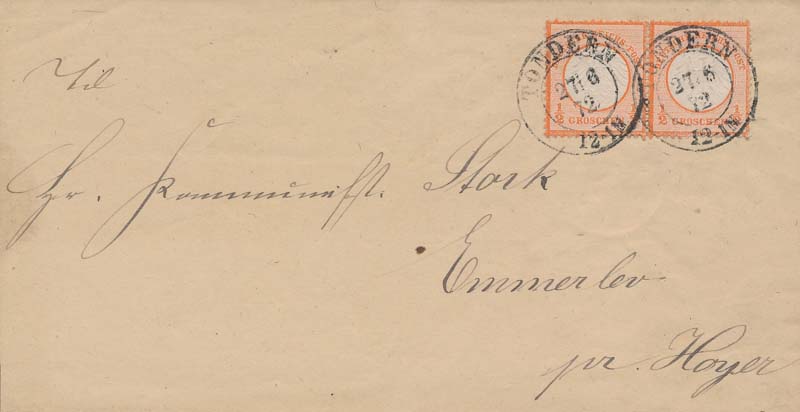 TONDERN
27 6
72
12-1N
1/2 GROSCHEN 1/2
TONDERN
27 6
72
12-1N
1/2 GROSCHEN 1/2
Til
Hr. Stork
Emmerlev
pr. Hoyer